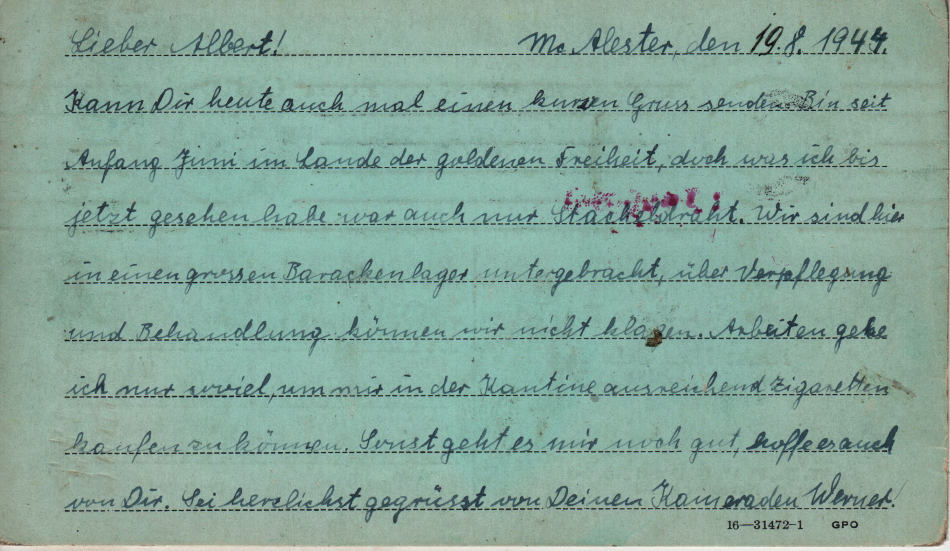 Lieber Albert! Mc Alester, den 19.8.1944.
Kann Dir heute auch mal einen kurzen Gruss senden. Bin seit
Anfang Juni im Lande der goldenen Freiheit, doch was ich bis
jetzt gesehen habe war auch nur Stacheldraht. Wir sind hier
in einen grossen Barackenlager untergebracht, über Verpflegung
und Behandlung können wir nicht klagen. Arbeiten gehe
ich nur soviel, um mir in der Kantine ausreichend Zigaretten
kaufen zu können. Sonst geht es mir noch gut, hoffe es auch
von Dir. Sei herzlichst gegrüsst von Deinen Kameraden Werner!
16—31472-1 GPO